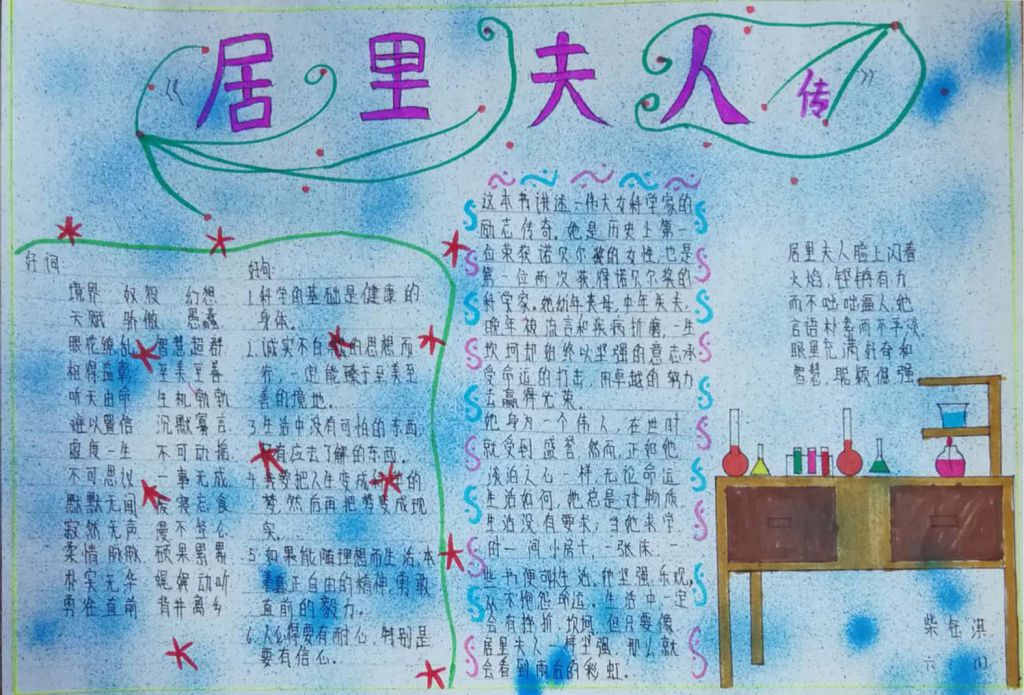 《居里夫人传》
好词:
境界 奴役 幻想
天赋 骄傲 愚蠢
眼花缭乱 智慧超群
相得益彰 至美至善
听天由命 生机勃勃
难以置信 沉默寡言
虚度一生 不可动摇
不可思议 一事无成
默默无闻 废寝忘食
寂然无声 漫不经心
柔情脉脉 硕果累累
朴实无华 娓娓动听
勇往直前 背井离乡
好句:
1.科学的基础是健康的
身体。
2.诚实不自欺的思想而
行,一定能臻于至美至
善的境地。
3.生活中没有可怕的东西,
只有应去了解的东西。
4.我要把人生变成科学的
梦,然后再把梦变成现
实。
5.如果能随理想而生活,本
着真正自由的精神,勇敢
直前的毅力。
6.人必得要有耐心,特别是
要有信心。
这本书讲述一伟大女科学家的
励志传奇。她是历史上第一
位荣获诺贝尔奖的女性,也是
第一位两次获得诺贝尔奖的
科学家。她幼年丧母,中年失夫,
晚年被流言和疾病折磨,一生
坎坷却始终以坚强的意志承
受命运的打击,用卓越的努力
去赢得光荣。
她身为一个伟人,在世时
就受到盛誉,然而,正如他
淡泊之心一样,无论命运
生活如何,她总是对物质
生活没有要求;当她求学
时一间小房子,一张床,一
些书便可生活。她坚强、乐观,
从不抱怨命运。生活中一定
会有挫折,坎坷,但只要像
居里夫人一样坚强,那么就
会看到雨后的彩虹。
居里夫人脸上闪着
火焰,铿锵有力
而不咄咄逼人,她
言语朴素而不平淡,
眼里充满好奇和
智慧,聪颖倔强
柴钰淇
六 (1)